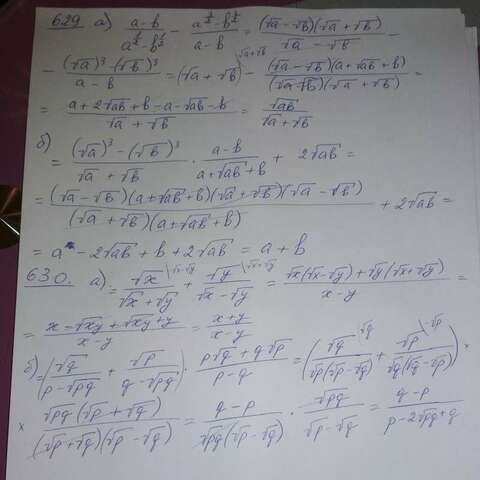 629 а) (a-b)/(a^(1/2)-b^(1/2)) - (a^(3/2)-b^(3/2))/(a-b) = ((√a-√b)(√a+√b))/(√a-√b) -
- ((√a)³-(√b)³)/(a-b) = (√a+√b) \√a+√b - ((√a-√b)(a+√ab+b))/((√a-√b)(√a+√b)) =
= (a+2√ab+b-a-√ab-b)/(√a+√b) = √ab/(√a+√b)
б)
= ((√a)³-(√b)³)/(√a+√b) · (a-b)/(a+√ab+b) + 2√ab =
= ((√a-√b)(a+√ab+b)(√a+√b)(√a-√b))/((√a+√b)(a+√ab+b)) + 2√ab =
= a - 2√ab + b + 2√ab = a + b
630. а) = √x/(√x+√y) \√x-√y + √y/(√x-√y) \√x+√y = (√x(√x-√y)+√y(√x+√y))/(x-y) =
= (x-√xy+√xy+y)/(x-y) = (x+y)/(x-y)
б) = (√q/(p-√pq) + √p/(q-√pq)) · (p√q+q√p)/(p-q) = (√q/(√p(√p-√q)) \√q + √p/(√q(√q-√p)) \-√p) ×
× (√pq(√p+√q))/((√p+√q)(√p-√q)) = (q-p)/(√pq(√p-√q)) · √pq/(√p-√q) = (q-p)/(p-2√pq+q)